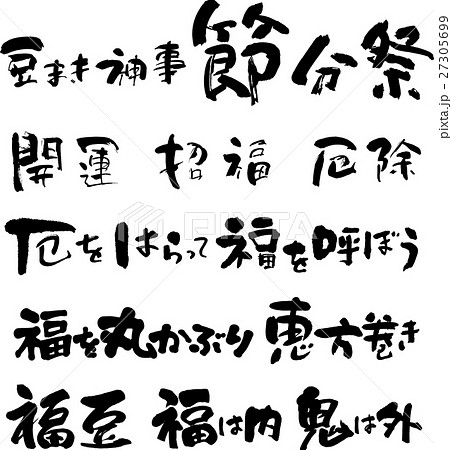 豆まき神事 節分祭
開運 招福 厄除
厄をはらって福を呼ぼう
福を丸かぶり恵方巻き
福豆 福は内 鬼は外
PIXTA
pixta.jp - 27305699